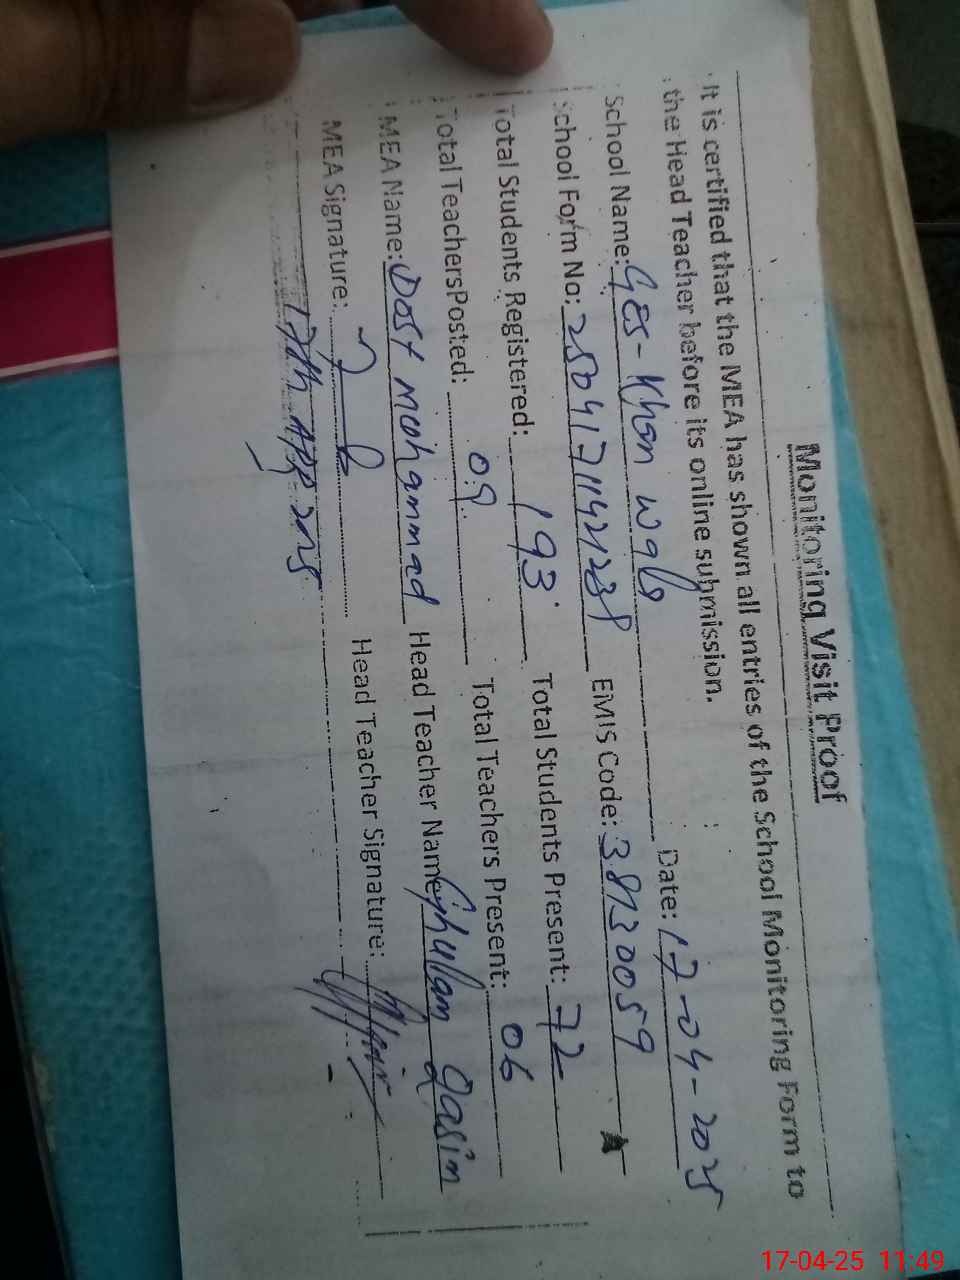 Monitoring Visit Proof
It is certified that the MEA has shown all entries of the School Monitoring Form to
the Head Teacher before its online submission.
School Name: GES-Khan wala Date: 17-04-2025
School Form No: 25041711421238 EMIS Code: 38130059
Total Students Registered: 193 Total Students Present: 72
Total TeachersPosted: 09 Total Teachers Present: 06
MEA Name: Dost mohammad Head Teacher Name Ghulam Qasim
MEA Signature: Head Teacher Signature:
17th APR 2025
17-04-25 11:49